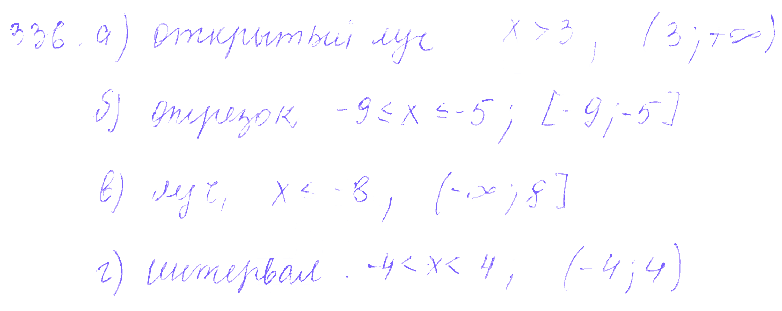 336. а) открытый луч x > 3, (3; +∞)
б) отрезок, -9 ≤ x ≤ -5; [-9; -5]
в) луч, x < -8, (-∞; 8]
г) интервал. -4 < x < 4, (-4; 4)